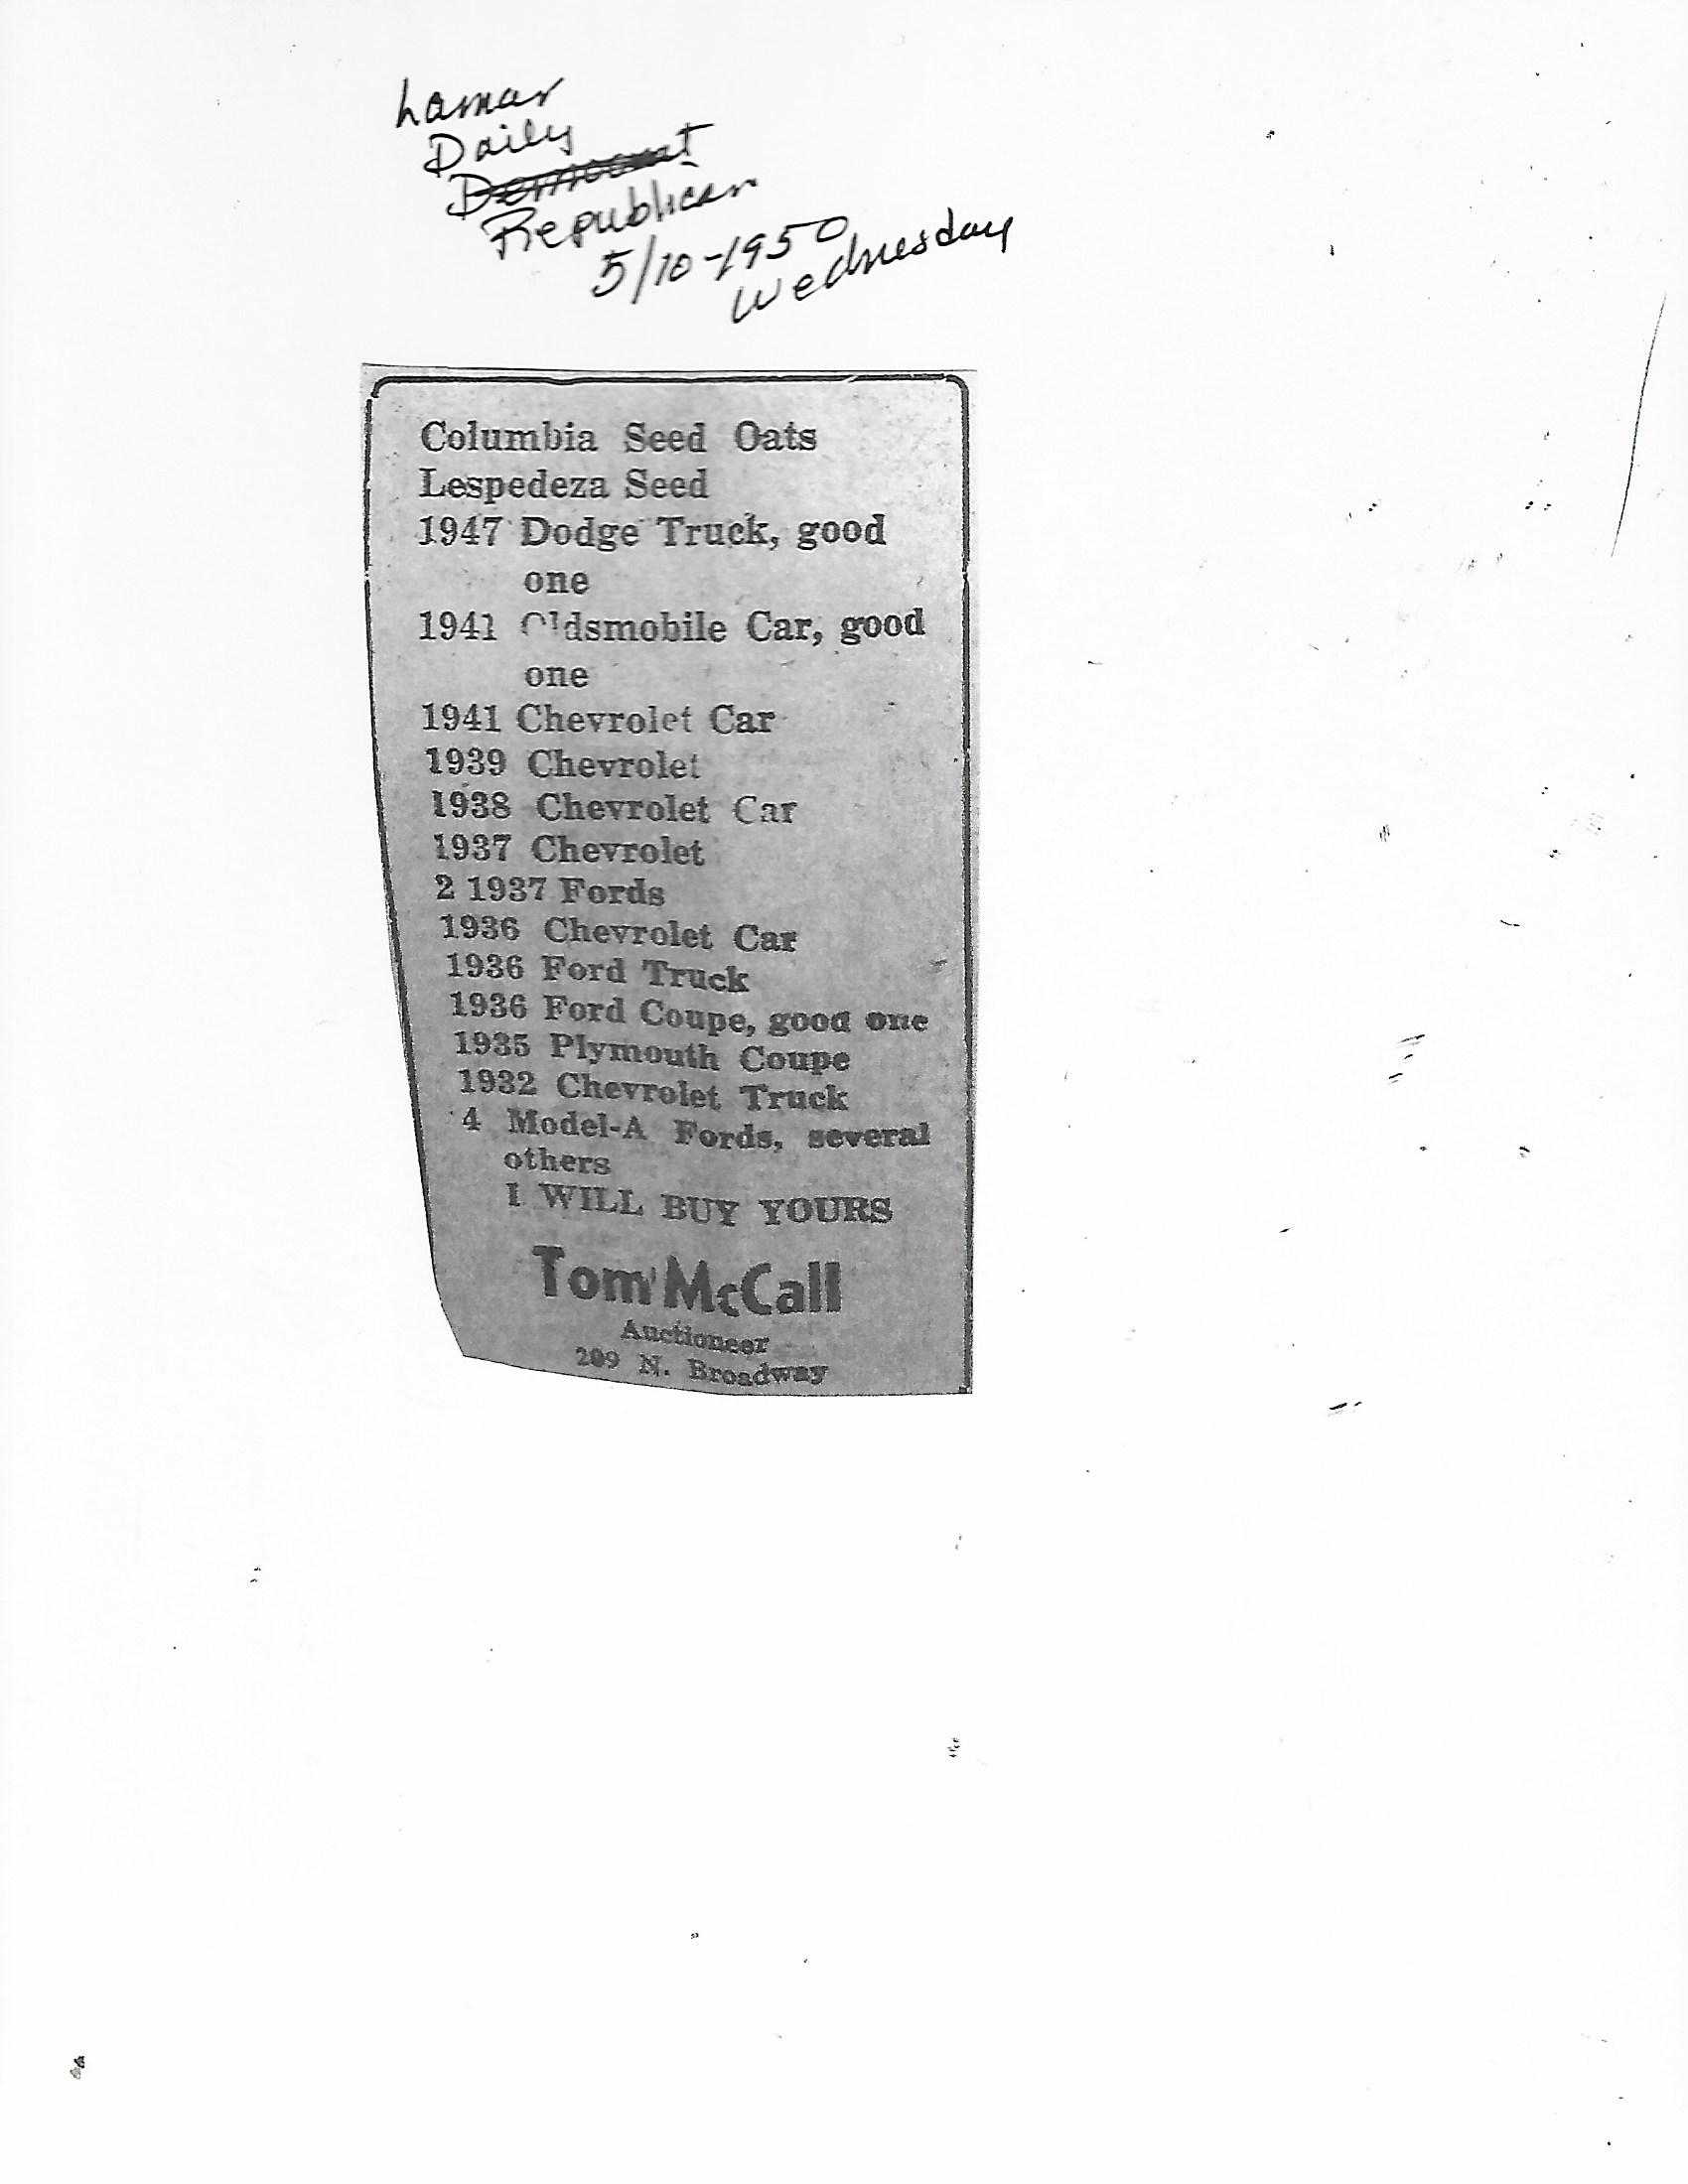 Lamar
Daily
Democrat
Republican
5/10-1950
Wednesday
Columbia Seed Oats
Lespedeza Seed
1947 Dodge Truck, good
one
1941 Oldsmobile Car, good
one
1941 Chevrolet Car
1939 Chevrolet
1938 Chevrolet Car
1937 Chevrolet
2 1937 Fords
1936 Chevrolet Car
1936 Ford Truck
1936 Ford Coupe, good one
1935 Plymouth Coupe
1932 Chevrolet Truck
4 Model-A Fords, several
others
I WILL BUY YOURS
Tom McCall
Auctioneer
209 N. Broadway